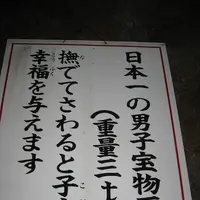 日本一の男子宝物
(重量三十
撫でてさわると子
幸福を与えます